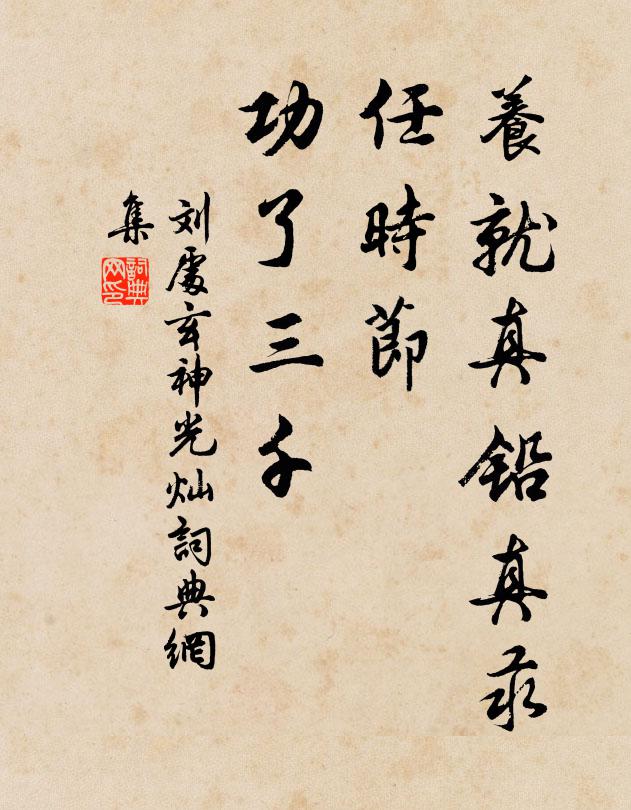 養就真鉛真汞
任時節
功了三千
刘處玄神光灿詞典網
集
詞典网印